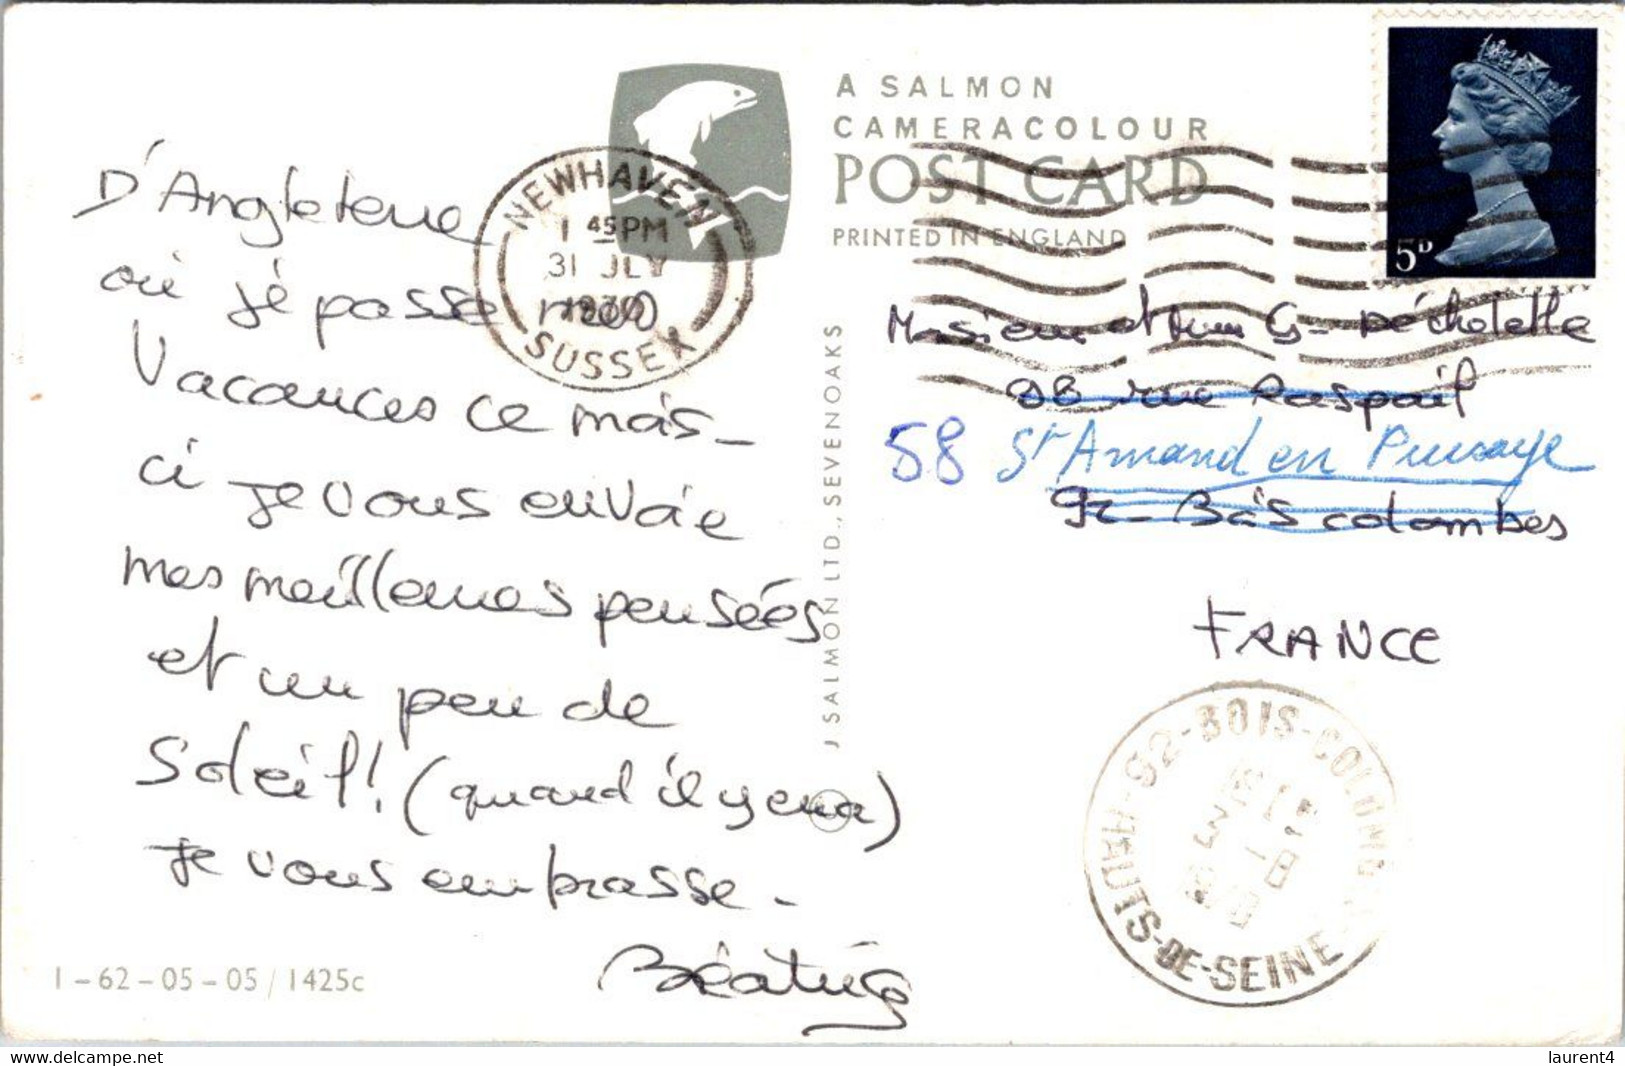 A SALMON
CAMERACOLOUR
POST CARD
PRINTED IN ENGLAND
5D
NEWHAVEN
1 45 PM
31 JLY
1970
SUSSEX
D'Angleterre
où je passe mes
Vacances ce mois-
ci je vous envoie
mes meilleures pensées
et un peu de
Soleil! (quand il y en a)
Je vous embrasse -
Béatrice
1-62-05-05/1425c
J SALMON LTD., SEVENOAKS
Monsieur et Mme G- Péchotette
98 rue Raspail
58 St Amand en Puisaye
92- Bois colombes
FRANCE
92-BOIS-COLOMBES
HAUTS-DE-SEINE
www.delcampe.net
laurent4